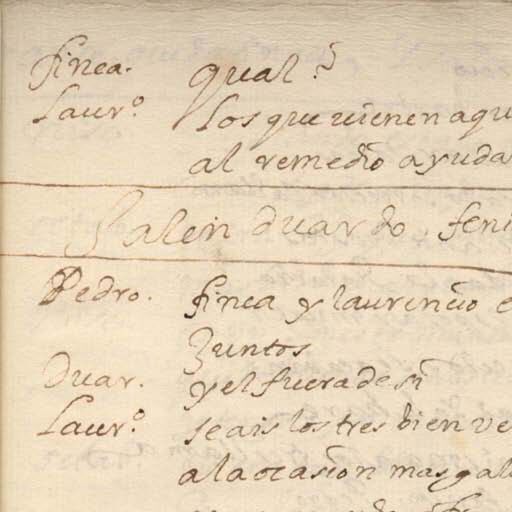 finea. qual?
Laur.º los que vienen aqu
al remedio ayuda
Salen duardo, feni
Pedro. finea y laurencio e
Zuntos
Duar. y el fuera de si
Laur.º seais los tres bien ve
a la ocasion mas gall